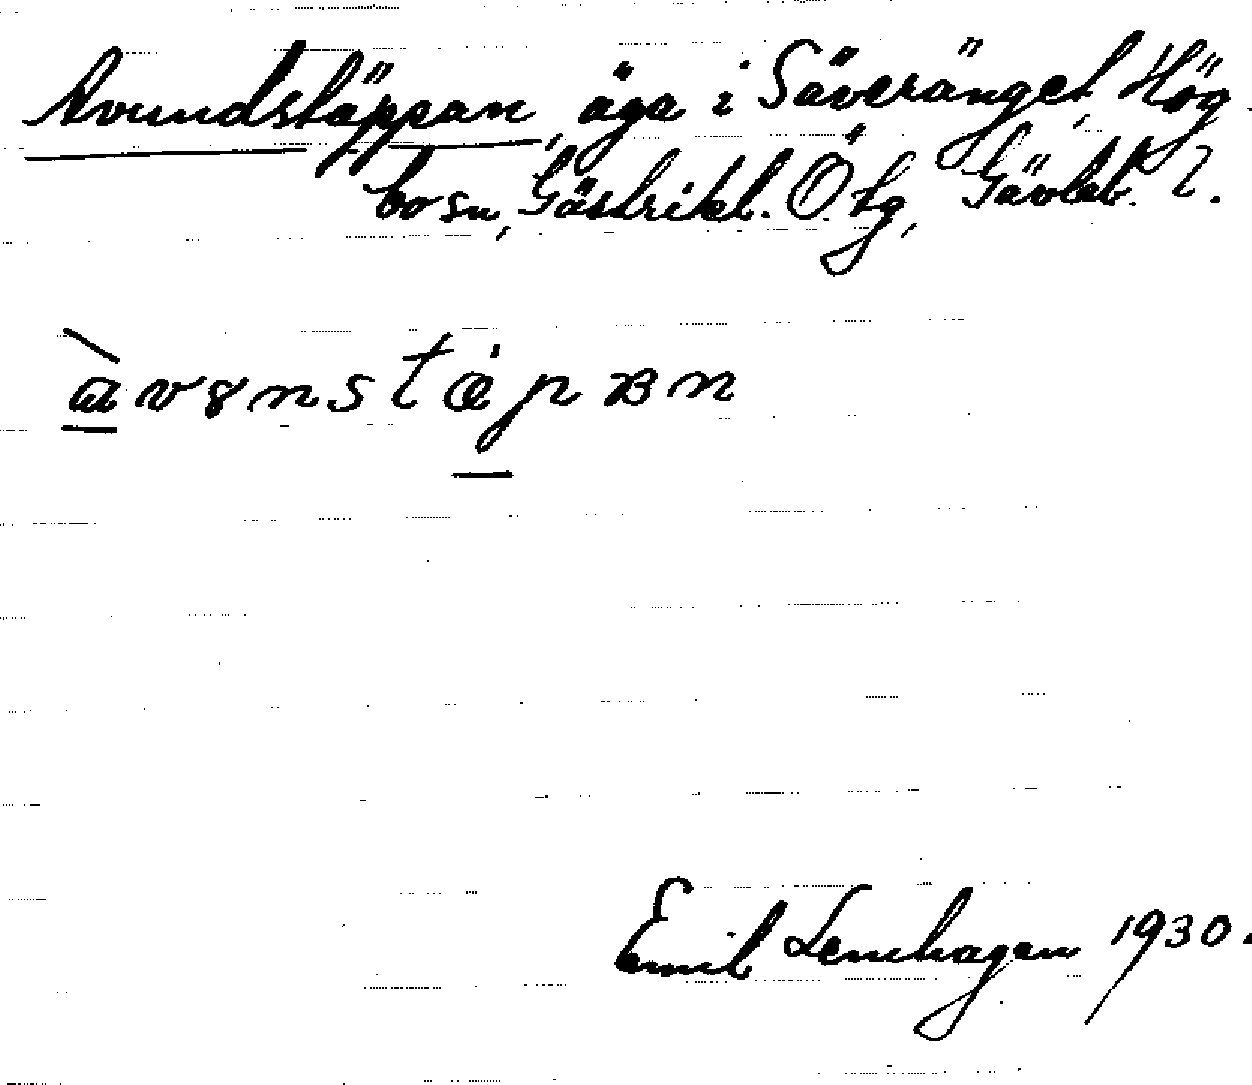 Avundstäppan, äga i Säveränget, Hög-
bo sn, Gästrikl. Ö. tg, Gävleb. l.
àvɞnstäpᴃn
Emil Lenhagen 1930.